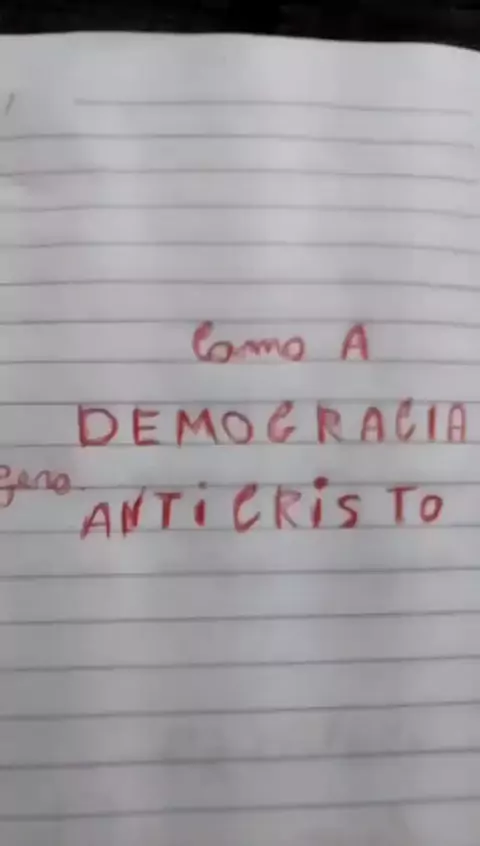 Como A
DEMOCRACIA
gera ANTiCRiSTO